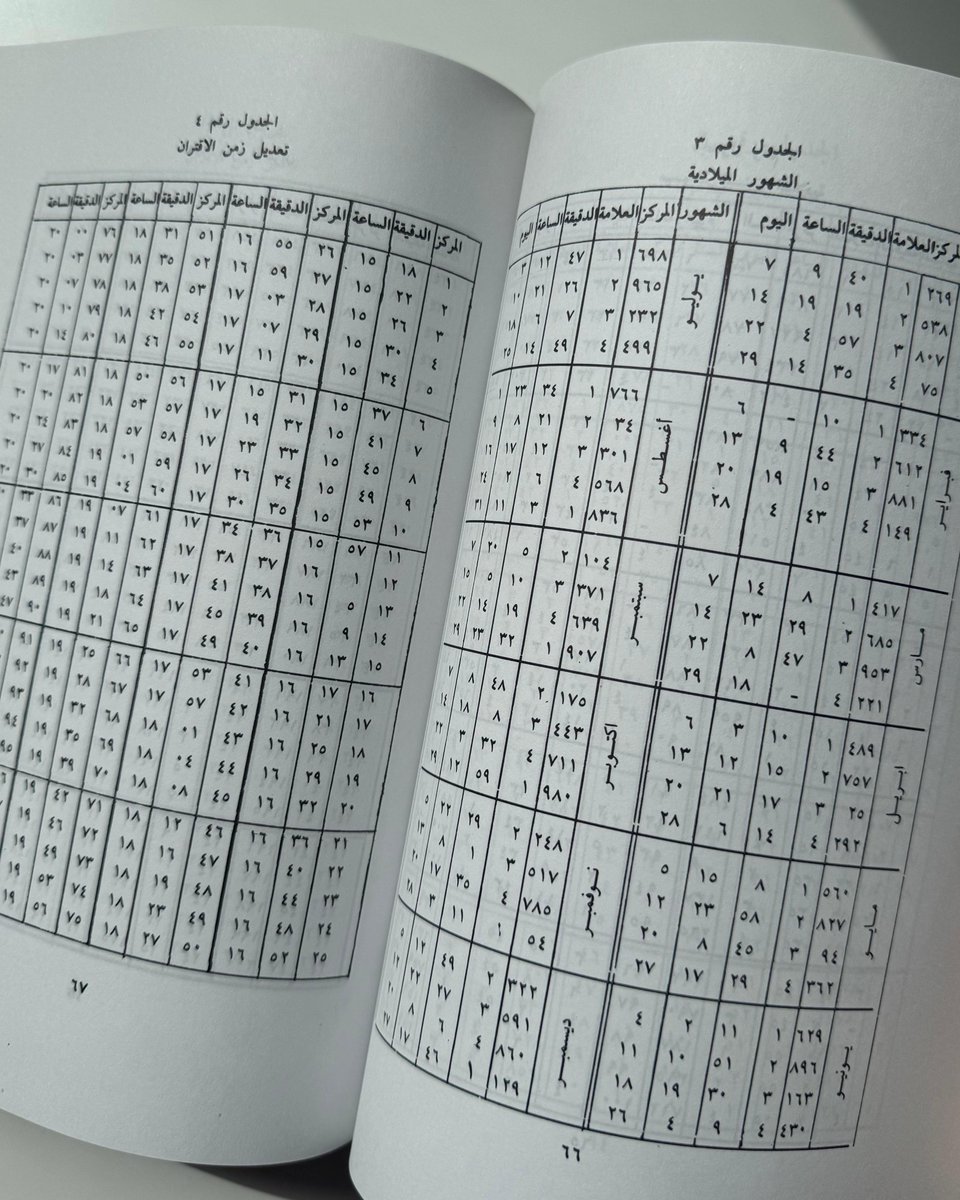 الجدول رقم ٣
الشهور الميلادية
المركز العلامة الدقيقة الساعة اليوم الشهور المركز العلامة الدقيقة الساعة اليوم
٢٦٩ ١ ٤٠ ٩ ٧
٥٣٨ ٢ ١٩ ١٩ ١٤
٨٠٧ ٣ ٥٧ ٤ ٢٢
٧٥ ٤ ٣٥ ١٤ ٢٩
فبراير
٣٣٤ ١ ١٠ - ٦
٦١٢ ٢ ٤٤ ٩ ١٣
٨٨١ ٣ ١٥ ١٩ ٢٠
١٤٩ ٤ ٤٣ ٤ ٢٨
مارس
٤١٧ ١ ٨ ١٤ ٧
٦٨٥ ٢ ٢٩ ٢٣ ١٤
٩٥٣ ٣ ٤٧ ٨ ٢٢
٢٢١ ٤ - ١٨ ٢٩
ابريل
٤٨٩ ١ ١٠ ٣ ٦
٧٥٧ ٢ ١٥ ١٢ ١٣
٢٥ ٣ ١٧ ٢١ ٢٠
٢٩٢ ٤ ١٤ ٦ ٢٨
مايو
٥٦٠ ١ ٨ ١٥ ٥
٨٢٧ ٢ ٥٨ ٢٣ ١٢
٩٤ ٣ ٤٥ ٨ ٢٠
٣٦٢ ٤ ٢٩ ١٧ ٢٧
يونيو
٦٢٩ ١ ١١ ٢ ٤
٨٩٦ ٢ ٥١ ١٠ ١١
١٦٣ ٣ ٣٠ ١٩ ١٨
٤٣٠ ٤ ٩ ٤ ٢٦
يوليو
٦٩٨ ١ ٤٧ ١٢ ٣
٩٦٥ ٢ ٢٦ ٢١ ١٠
٢٣٢ ٣ ٧ ٦ ١٨
٤٩٩ ٤ ٤٩ ١٤ ٢٥
أغسطس
٧٦٦ ١ ٣٤ ٢٣ ١
٣٤ ٢ ٢١ ٨ ٩
٣٠١ ٣ ١٢ ١٧ ١٦
٥٦٨ ٤ ٦ ٢ ٢٤
٨٣٦ ١ ٣ ١١ ٣١
سبتمبر
١٠٤ ٢ ٥ ٢٠ ٧
٣٧١ ٣ ١٠ ٥ ١٥
٦٣٩ ٤ ١٩ ١٤ ٢٢
٩٠٧ ١ ٣٢ ٢٣ ٢٩
اكتوبر
١٧٥ ٢ ٤٨ ٨ ٧
٤٤٣ ٣ ٨ ١٨ ١٤
٧١١ ٤ ٣٢ ٣ ٢٢
٩٨٠ ١ ٥٩ ١٢ ٢٩
نوفمبر
٢٤٨ ٢ ٢٩ ٢٢ ٥
٥١٧ ٣ ١ ٨ ١٣
٧٨٥ ٤ ٣٥ ١٧ ٢٠
٥٤ ١ ١١ ٣ ٢٨
ديسمبر
٣٢٢ ٢ ٤٩ ١٢ ٥
٥٩١ ٣ ٢٧ ٢٢ ١٢
٨٦٠ ٤ ٦ ٨ ٢٠
١٢٩ ١ ٤٦ ١٧ ٢٧
٦٦
الجدول رقم ٤
تعديل زمن الاقتران
المركز الدقيقة الساعة المركز الدقيقة الساعة المركز الدقيقة الساعة المركز الدقيقة الساعة
١ ١٨ ١٥ ٢٦ ٥٥ ١٦ ٥١ ٣١ ١٨ ٧٦ ٠٠ ٢٠
٢ ٢٢ ١٥ ٢٧ ٥٩ ١٦ ٥٢ ٣٥ ١٨ ٧٧ ٠٣ ٢٠
٣ ٢٦ ١٥ ٢٨ ٠٣ ١٧ ٥٣ ٣٨ ١٨ ٧٨ ٠٧ ٢٠
٤ ٣٠ ١٥ ٢٩ ٠٧ ١٧ ٥٤ ٤٢ ١٨ ٧٩ ١٠ ٢٠
٥ ٣٤ ١٥ ٣٠ ١١ ١٧ ٥٥ ٤٦ ١٨ ٨٠ ١٤ ٢٠
٦ ٣٧ ١٥ ٣١ ١٥ ١٧ ٥٦ ٥٠ ١٨ ٨١ ١٧ ٢٠
٧ ٤١ ١٥ ٣٢ ١٩ ١٧ ٥٧ ٥٣ ١٨ ٨٢ ٢٠ ٢٠
٨ ٤٥ ١٥ ٣٣ ٢٣ ١٧ ٥٨ ٥٧ ١٨ ٨٣ ٢٤ ٢٠
٩ ٤٩ ١٥ ٣٤ ٢٦ ١٧ ٥٩ ٠١ ١٩ ٨٤ ٢٧ ٢٠
١٠ ٥٣ ١٥ ٣٥ ٣٠ ١٧ ٦٠ ٠٤ ١٩ ٨٥ ٣٠ ٢٠
١١ ٥٧ ١٥ ٣٦ ٣٤ ١٧ ٦١ ٠٧ ١٩ ٨٦ ٣٣
١٢ ١ ١٦ ٣٧ ٣٨ ١٧ ٦٢ ١١ ١٩ ٨٧ ٣٧
١٣ ٥ ١٦ ٣٨ ٤١ ١٧ ٦٣ ١٤ ١٩ ٨٨ ٤٠
١٤ ٩ ١٦ ٣٩ ٤٥ ١٧ ٦٤ ١٨ ١٩ ٨٩ ٤٣
١٥ ١٣ ١٦ ٤٠ ٤٩ ١٧ ٦٥ ٢١ ١٩ ٩٠ ٤٧
١٦ ١٧ ١٦ ٤١ ٥٣ ١٧ ٦٦ ٢٥ ١٩ ٩١
١٧ ٢١ ١٦ ٤٢ ٥٧ ١٧ ٦٧ ٢٨ ١٩ ٩٢
١٨ ٢٥ ١٦ ٤٣ ٠١ ١٨ ٦٨ ٣٢ ١٩ ٩٣
١٩ ٢٩ ١٦ ٤٤ ٠٤ ١٨ ٦٩ ٣٥ ١٩ ٩٤
٢٠ ٣٢ ١٦ ٤٥ ٠٨ ١٨ ٧٠ ٣٩ ١٩ ٩٥
٢١ ٣٦ ١٦ ٤٦ ١٢ ١٨ ٧١ ٤٢ ١٩
٢٢ ٤٠ ١٦ ٤٧ ١٦ ١٨ ٧٢ ٤٦ ١٩
٢٣ ٤٤ ١٦ ٤٨ ١٩ ١٨ ٧٣ ٤٩ ١٩
٢٤ ٤٨ ١٦ ٤٩ ٢٣ ١٨ ٧٤ ٥٣ ١٩
٢٥ ٥٢ ١٦ ٥٠ ٢٧ ١٨ ٧٥ ٥٦ ١٩
٦٧